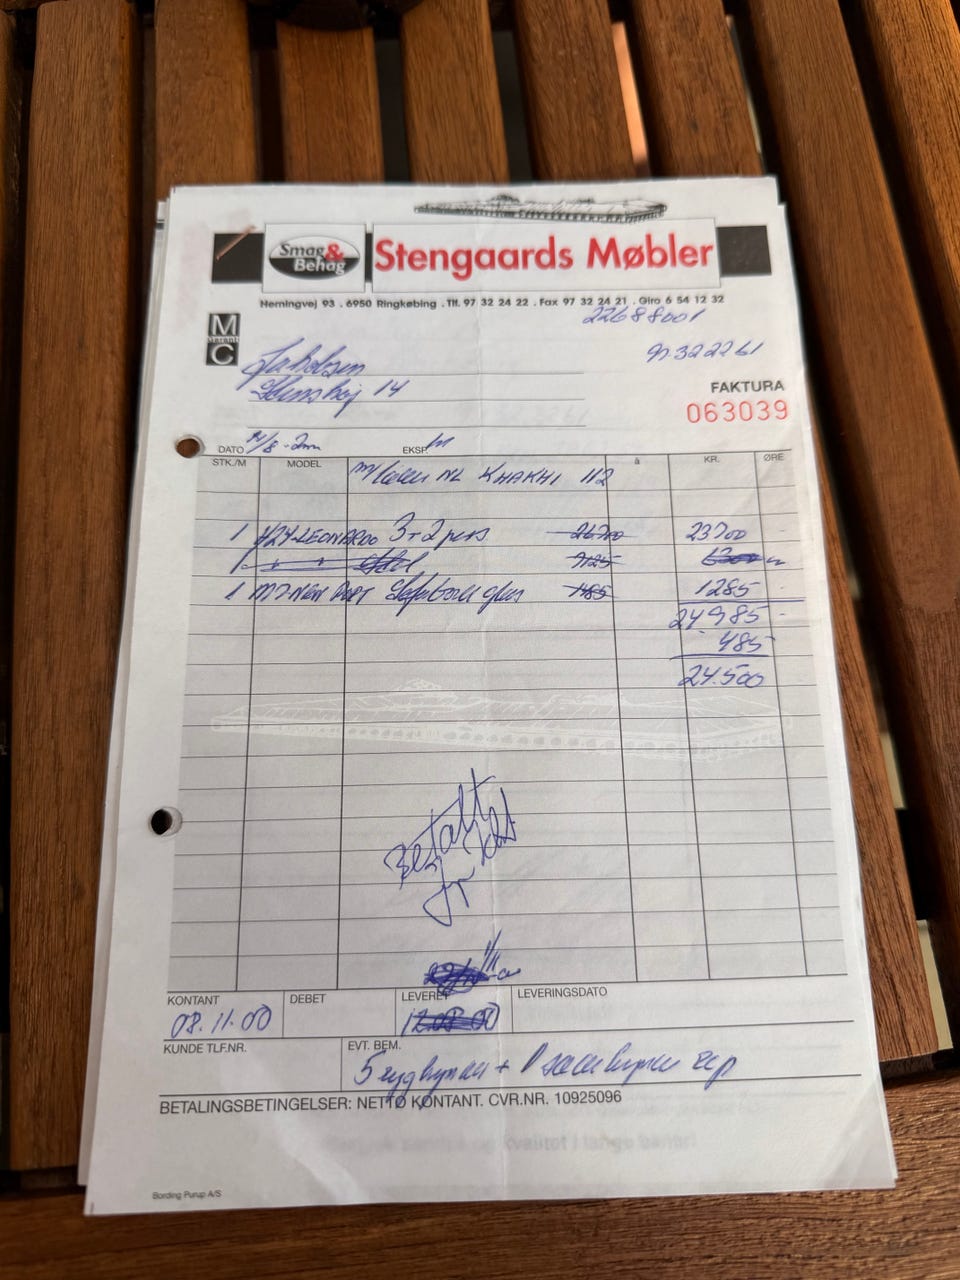 Smag & Behag
Stengaards Møbler
Herningvej 93 . 6950 Ringkøbing . Tlf. 97 32 24 22 . Fax 97 32 24 21 . Giro 6 54 12 32
22688001
M Garant C
Jakobsen
97322261
14
FAKTURA
063039
DATO
EKSP.
STK./M MODEL à KR. ØRE
NL KHAKHI 112
1 424-LEONARDO 3+2 pers 26700 23700 -
1 9125
1 M7-New Port Sofabord glas 1485 1285 -
24985 -
485
24.500
Betalt
KONTANT DEBET LEVERET LEVERINGSDATO
08.11.00 12.08.00
KUNDE TLF.NR. EVT. BEM.
5 ryghynder + 1
BETALINGSBETINGELSER: NETTO KONTANT. CVR.NR. 10925096
Bording Purup A/S